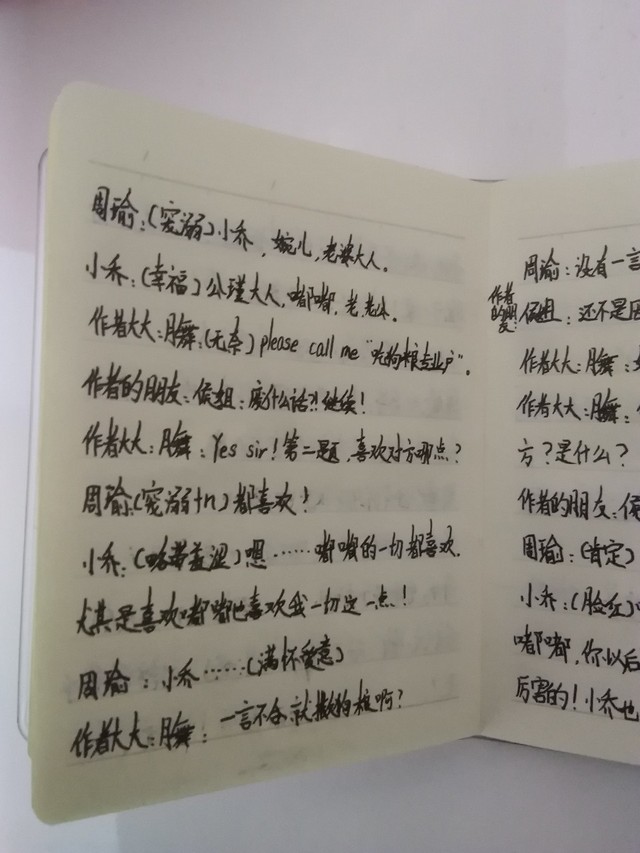 周瑜：(宠溺)小乔，婉儿，老婆大人。
小乔：(幸福)公瑾大人，嘟嘟，老老公。
作者大大：月舞：(无奈)please call me "吃狗粮专业户"。
作者的朋友：侯姐：废什么话?!继续！
作者大大：月舞：Yes sir！第二题，喜欢对方哪点？
周瑜：(宠溺+n)都喜欢！
小乔：(略带羞涩)嗯……嘟嘟的一切都喜欢.
尤其是喜欢嘟嘟也喜欢我一切这一点！
周瑜：小乔……(满怀爱意)
作者大大：月舞：一言不合就撒狗粮啊？
周瑜：没有一言
作者的朋友：侯姐：还不是因
作者大大：月舞：
作者大大：月舞：
方？是什么？
作者的朋友：侯
周瑜：(肯定)
小乔：(脸红)
嘟嘟，你以后
厉害的！小乔也